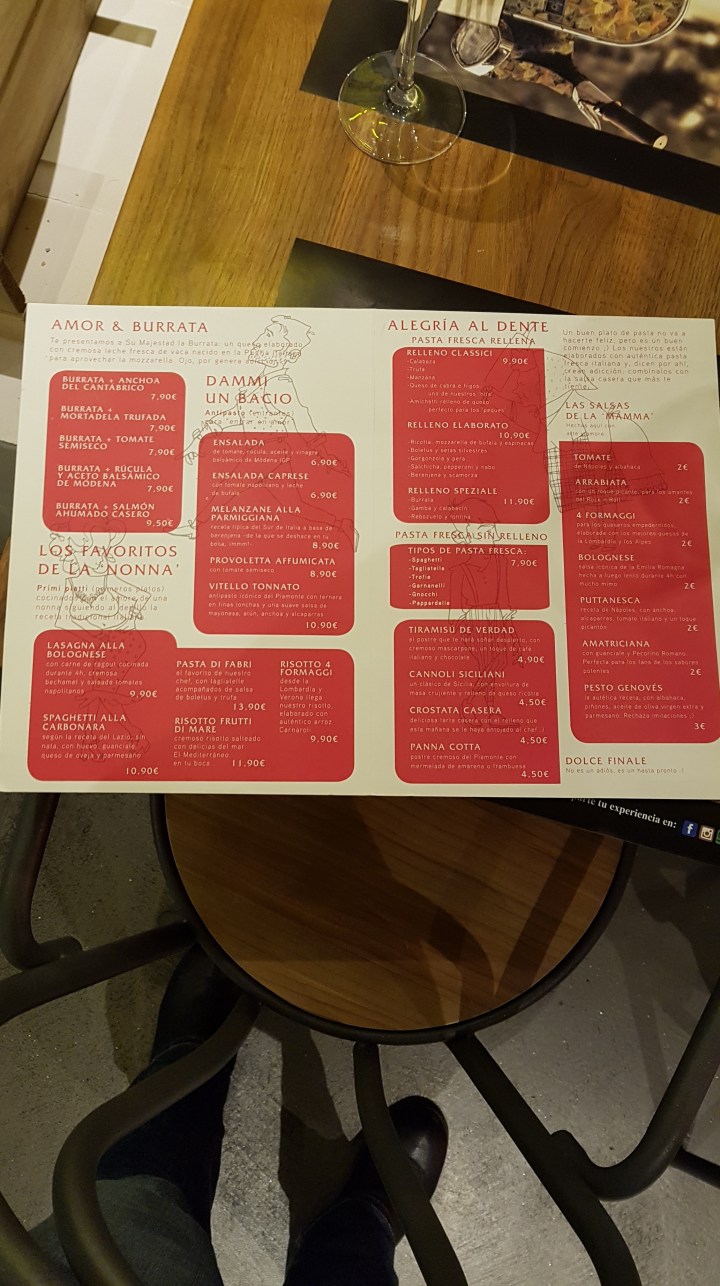 AMOR & BURRATA
Te presentamos a Su Majestad la Burrata: un queso elaborado
con cremosa leche fresca de vaca nacido en la Puglia italiana
para aprovechar la mozzarella. Ojo, por genera adicciones
BURRATA + ANCHOA
DEL CANTÁBRICO
7,90€
BURRATA +
MORTADELA TRUFADA
7,90€
BURRATA + TOMATE
SEMISECO
7,90€
BURRATA + RÚCULA
Y ACETO BALSÁMICO
DE MÓDENA
7,90€
BURRATA + SALMÓN
AHUMADO CASERO
9,50€
DAMMI
UN BACIO
Antipasto (entrantes)
para "entrar en amor"
ENSALADA
de tomate, rúcula, aceite y vinagre
balsámico de Módena IGP
6,90€
ENSALADA CAPRESE
con tomate napolitano y leche
de búfala
6,90€
MELANZANE ALLA
PARMIGGIANA
receta típica del Sur de Italia a base de
berenjena -de la que se deshace en tu
boca, ¡mmm!-
8,90€
PROVOLETTA AFFUMICATA
con tomate semiseco
8,90€
VITELLO TONNATO
antipasto icónico del Piamonte con ternera
en finas lonchas y una suave salsa de
mayonesa, atún, anchoa y alcaparras
10,90€
LOS FAVORITOS
DE LA 'NONNA'
Primi piatti (primeros platos)
cocinados con el amore de una
nonna siguiendo al dedillo la
receta tradicional italiana
LASAGNA ALLA
BOLOGNESE
con carne de ragout cocinada
durante 4h, cremosa
bechamel y salseada tomates
napolitanos
9,90€
SPAGHETTI ALLA
CARBONARA
según la receta del Lazio, sin
nata, con huevo, guanciale,
queso de oveja y parmesano
10,90€
PASTA DI FABRI
el favorito de nuestro
chef, con tagliatelle
acompañados de salsa
de boletus y trufa
13,90€
RISOTTO FRUTTI
DI MARE
cremoso risotto salteado
con delicias del mar.
El Mediterráneo
en tu boca
11,90€
RISOTTO 4
FORMAGGI
desde la
Lombardía y
Verona llega
nuestro risotto,
elaborado con
auténtico arroz
Carnaroli
9,90€
ALEGRÍA AL DENTE
PASTA FRESCA RELLENA
RELLENO CLASSICI
9,90€
-Calabaza
-Trufa
-Manzana
-Queso de cabra e higos:
uno de nuestros 'hits'
-Amichetti relleno de queso:
perfecto para los 'peques'
RELLENO ELABORATO
10,90€
-Ricotta, mozzarella de búfala y espinacas
-Boletus y setas silvestres
-Gorgonzola y pera
-Salchicha, pepperoni y nabo
-Berenjena y scamorza
RELLENO SPEZIALE
11,90€
-Burrata
-Gamba y calabacín
-Rebozuelo y fontina
PASTA FRESCA SIN RELLENO
TIPOS DE PASTA FRESCA:
7,90€
-Spaghetti
-Tagliatelle
-Trofie
-Garnanelli
-Gnocchi
-Pappardelle
TIRAMISÚ DE VERDAD
el postre que te hará soñar despierto, con
cremoso mascarpone, un toque de café
italiano y chocolate
4,90€
CANNOLI SICILIANI
un clásico de Sicilia, con envoltura de
masa crujiente y relleno de queso ricotta
4.50€
CROSTATA CASERA
deliciosa tarta casera con el relleno que
esta mañana se le haya antojado al chef ;)
4.50€
PANNA COTTA
postre cremoso del Piamonte con
mermelada de amarena o frambuesa
4.50€
Un buen plato de pasta no va a
hacerte feliz, pero es un buen
comienzo ;) Los nuestros están
elaborados con auténtica pasta
fresca italiana y, dicen por ahí,
crean adicción, combínalos con
la salsa casera que más te
llame:
LAS SALSAS
DE LA 'MAMMA'
Hechas aquí con
TOMATE
de Nápoles y albahaca
2€
ARRABIATA
con un toque picante, para los amantes
del Rock n Roll
2€
4 FORMAGGI
para los queseros empedernidos,
elaborada con los mejores quesos de
la Lombardía y los Alpes
2€
BOLOGNESE
salsa icónica de la Emilia Romagna
hecha a fuego lento durante 4h con
mucho mimo
2€
PUTTANESCA
receta de Nápoles, con anchoa,
alcaparras, tomate italiano y un toque
picantón
2€
AMATRICIANA
con guanciale y Pecorino Romano.
Perfecta para los fans de los sabores
potentes
2€
PESTO GENOVÉS
la auténtica receta, con albahaca,
piñones, aceite de oliva virgen extra y
parmesano. Rechaza imitaciones ;)
3€
DOLCE FINALE
No es un adiós, es un hasta pronto ;)
parte tu experiencia en: